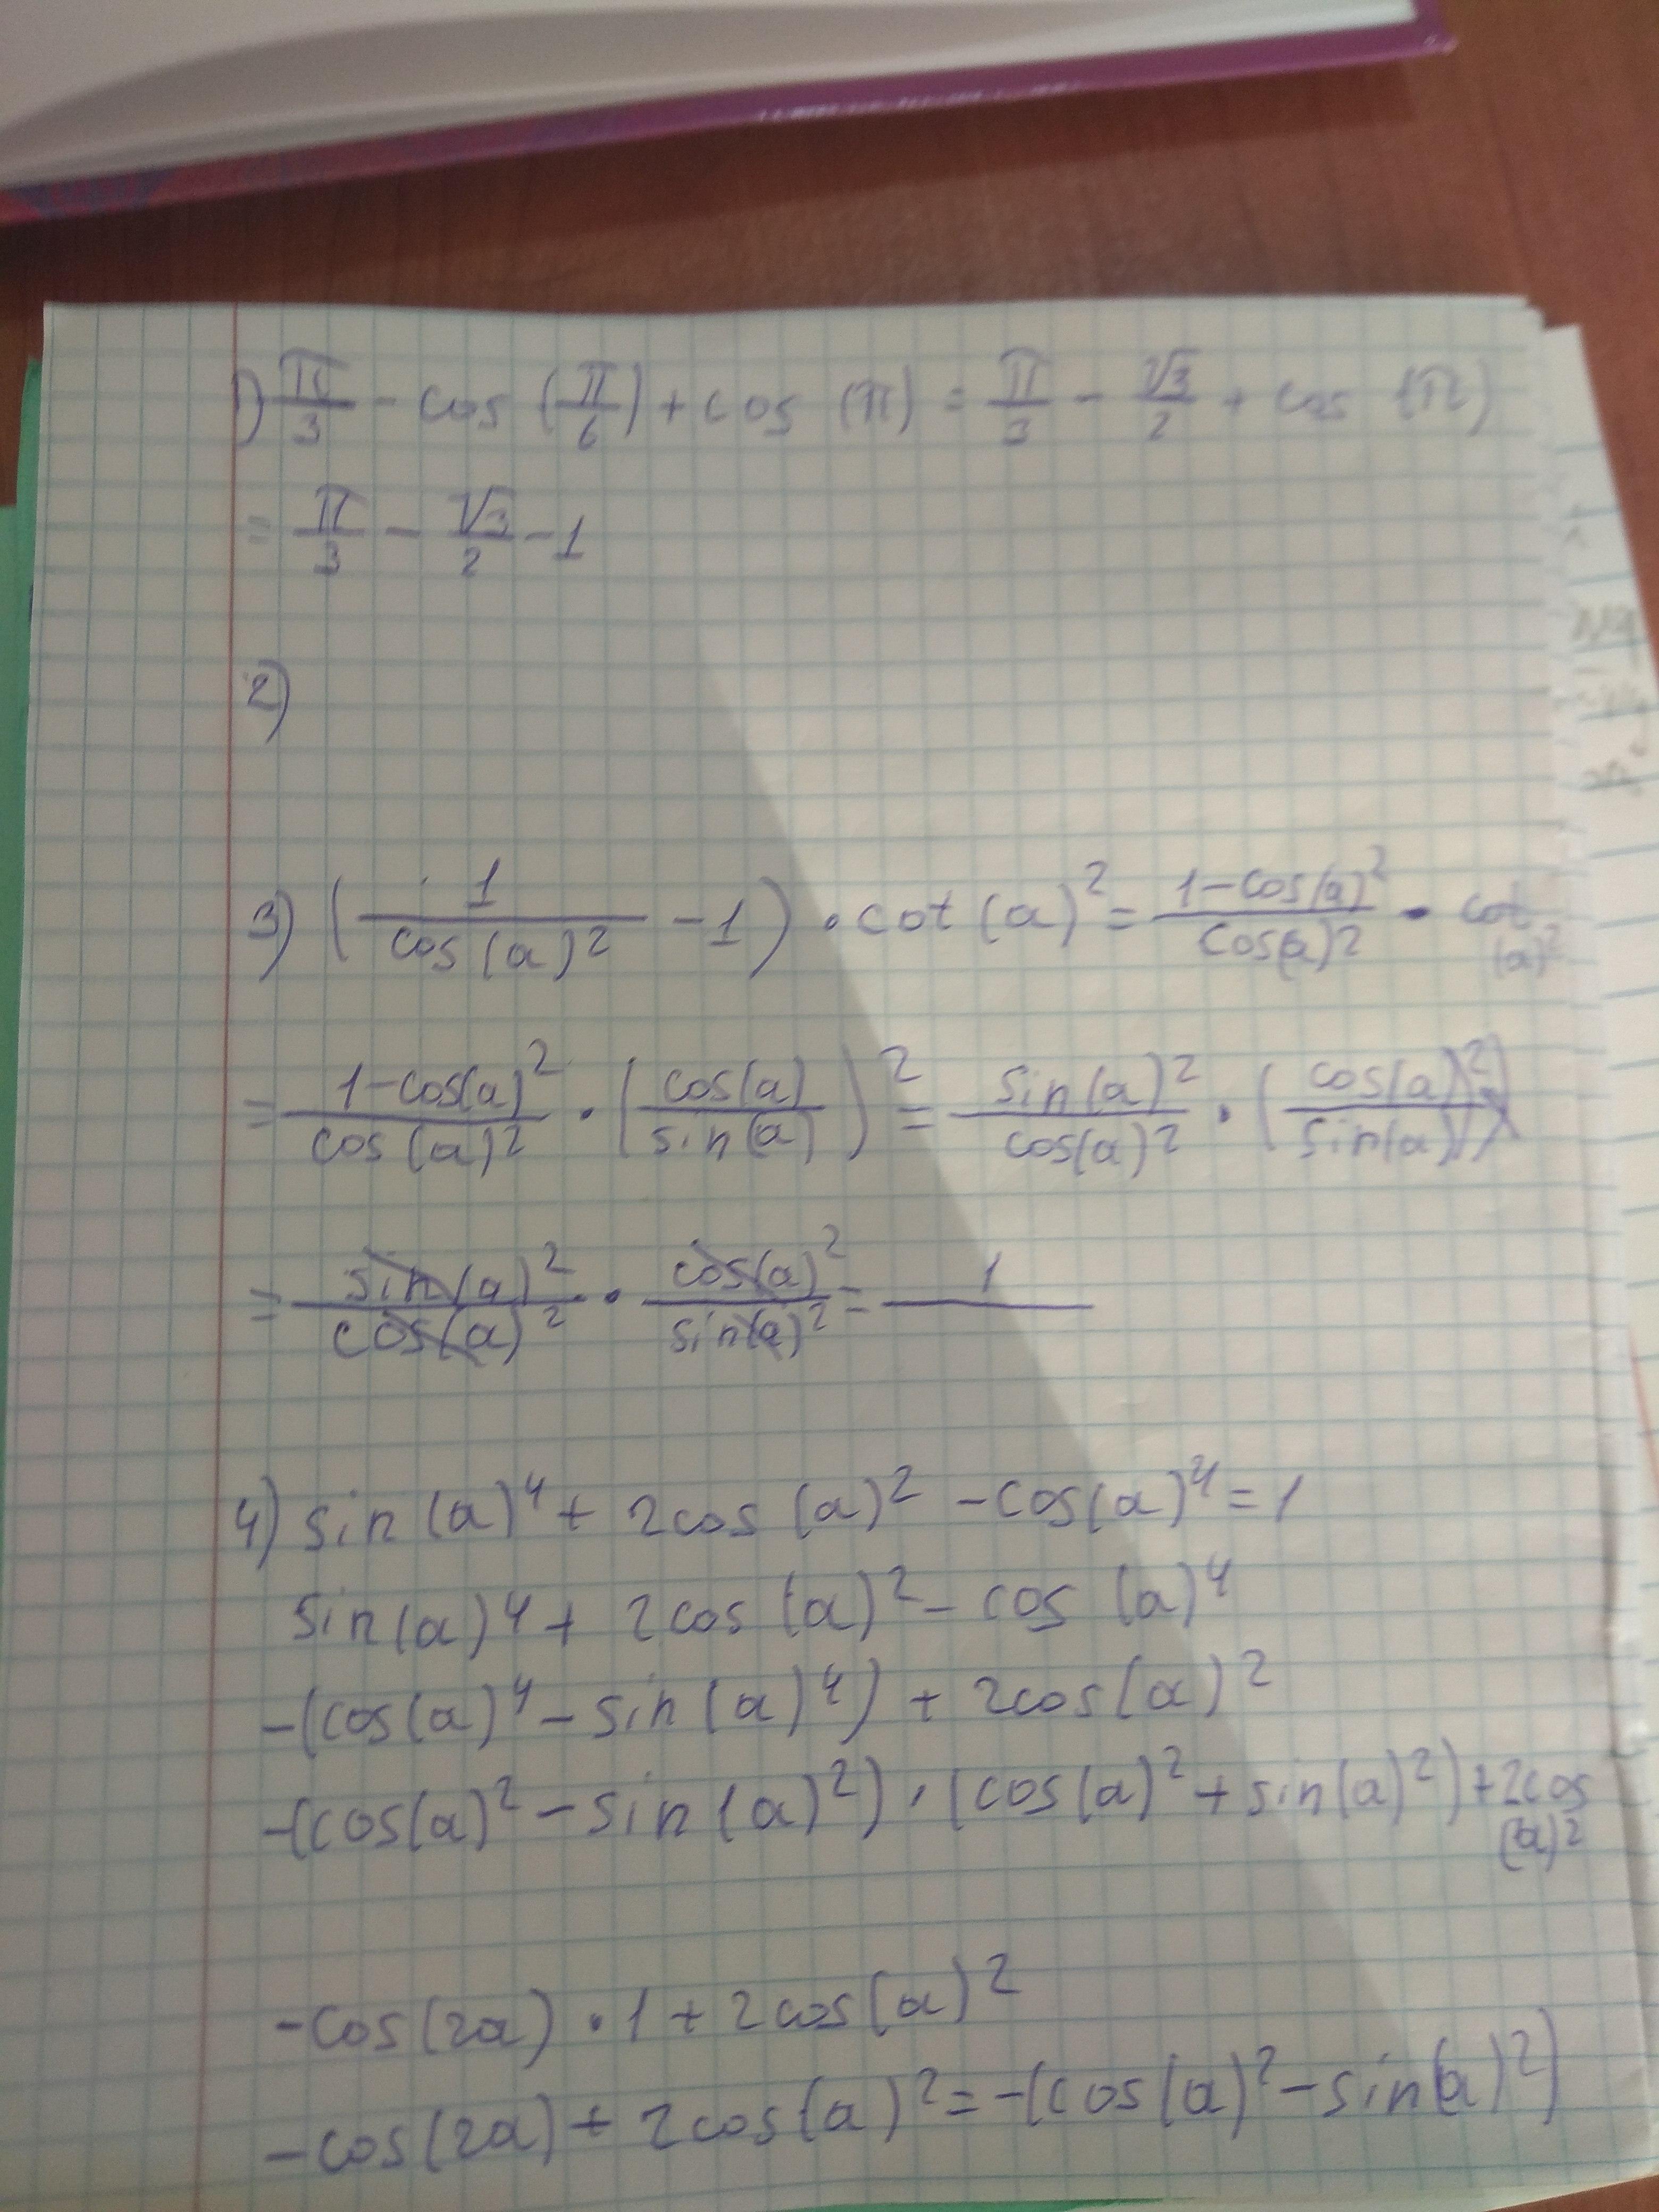 1) π/3 - cos (π/6) + cos (π) = π/3 - √3/2 + cos (π)
= π/3 - √3/2 - 1
2)
3) (1/cos(a)² - 1) · cot(a)² = 1-cos(a)²/cos(a)² · cot(a)²
= 1-cos(a)²/cos(a)² · (cos(a)/sin(a))² = sin(a)²/cos(a)² · (cos(a)²/sin(a))
= sin(a)²/cos(a)² · cos(a)²/sin(a)² = 1
4) sin(a)⁴ + 2cos(a)² - cos(a)⁴ = 1
sin(a)⁴ + 2cos(a)² - cos(a)⁴
-(cos(a)⁴ - sin(a)⁴) + 2cos(a)²
-(cos(a)² - sin(a)²) · (cos(a)² + sin(a)²) + 2cos(a)²
-cos(2a) · 1 + 2cos(a)²
-cos(2a) + 2cos(a)² = -(cos(a)² - sin(a)²)